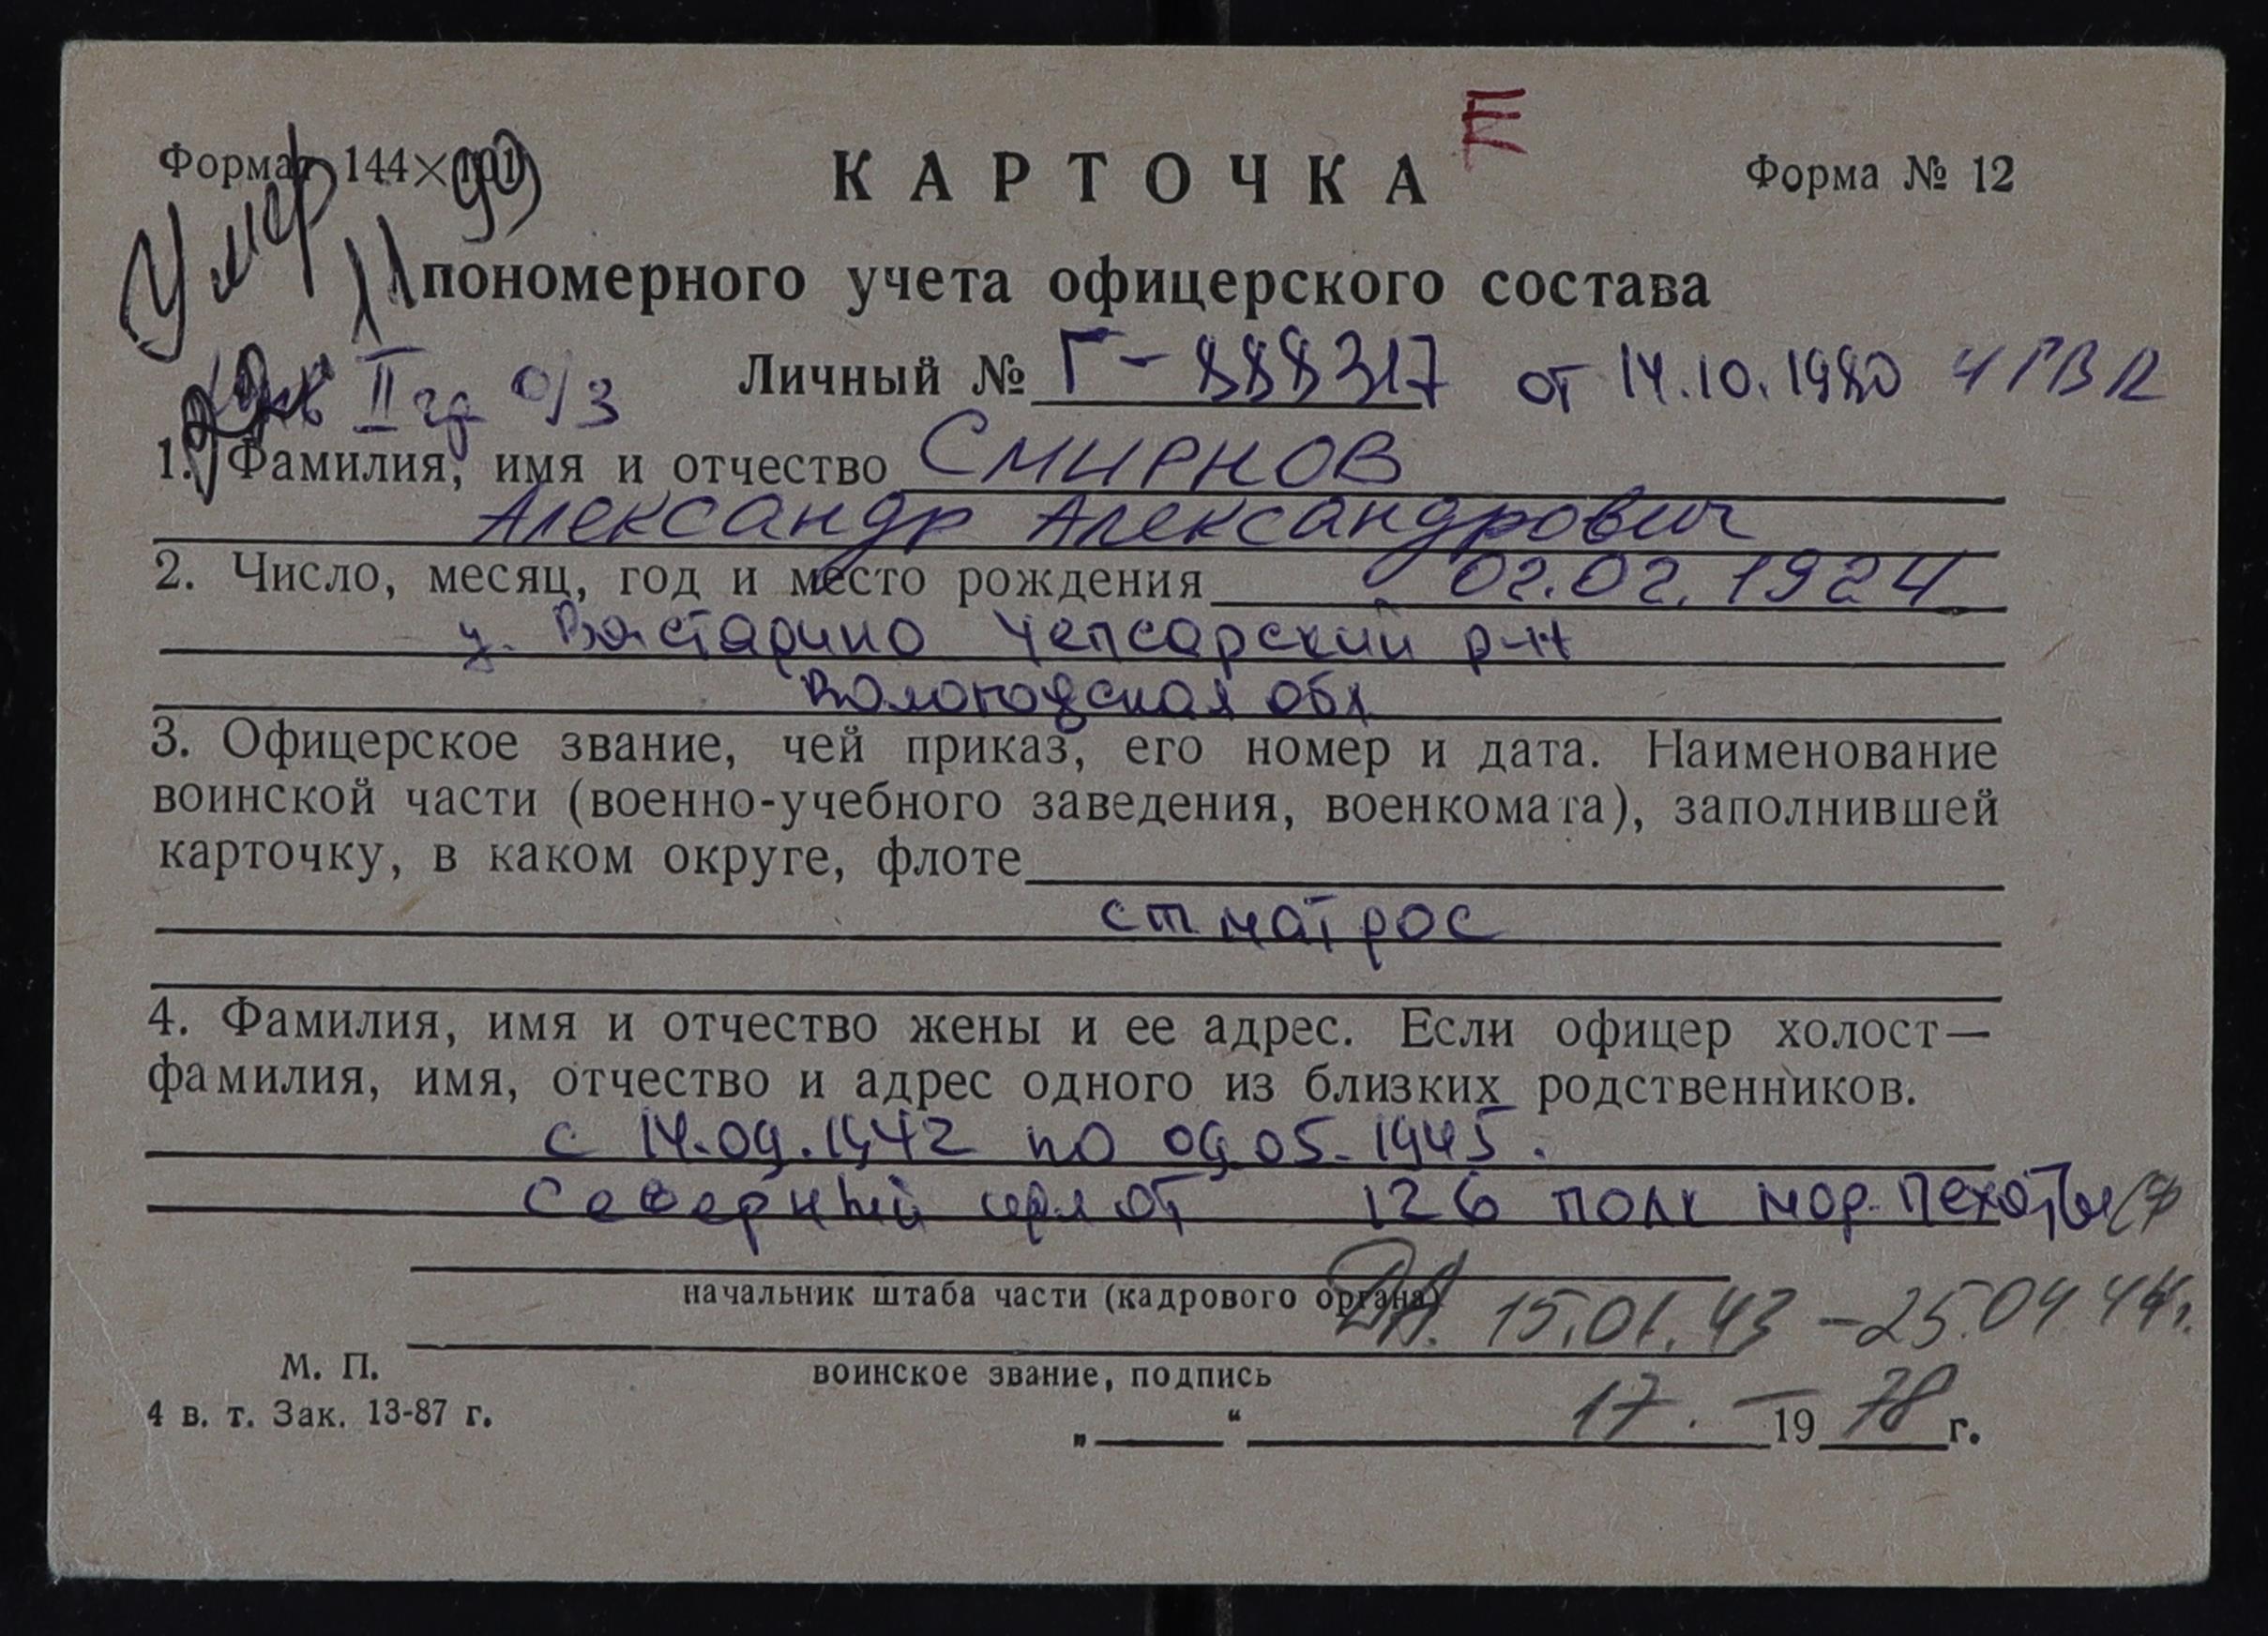 Е
Формат 144× Форма № 12
КАРТОЧКА
Умер 99
пономерного учета офицерского состава
II гр о/з Личный № Г-888317 от 14.10.1980 ч
1. Фамилия, имя и отчество Смирнов
Александр Александрович
2. Число, месяц, год и место рождения 02.02.1924
Чепсарский р-н
Вологодская обл
3. Офицерское звание, чей приказ, его номер и дата. Наименование
воинской части (военно-учебного заведения, военкомата), заполнившей
карточку, в каком округе, флоте
ст матрос
4. Фамилия, имя и отчество жены и ее адрес. Если офицер холост—
фамилия, имя, отчество и адрес одного из близких родственников.
с 14.09.1942 по 09.05.1945.
Северный флот 126 полк мор. пехоты
начальник штаба части (кадрового органа)
ДА. 15.01.43 – 25.04.44г.
воинское звание, подпись
М. П.
4 в. т. Зак. 13-87 г.
„ “ 17. – 1978 г.